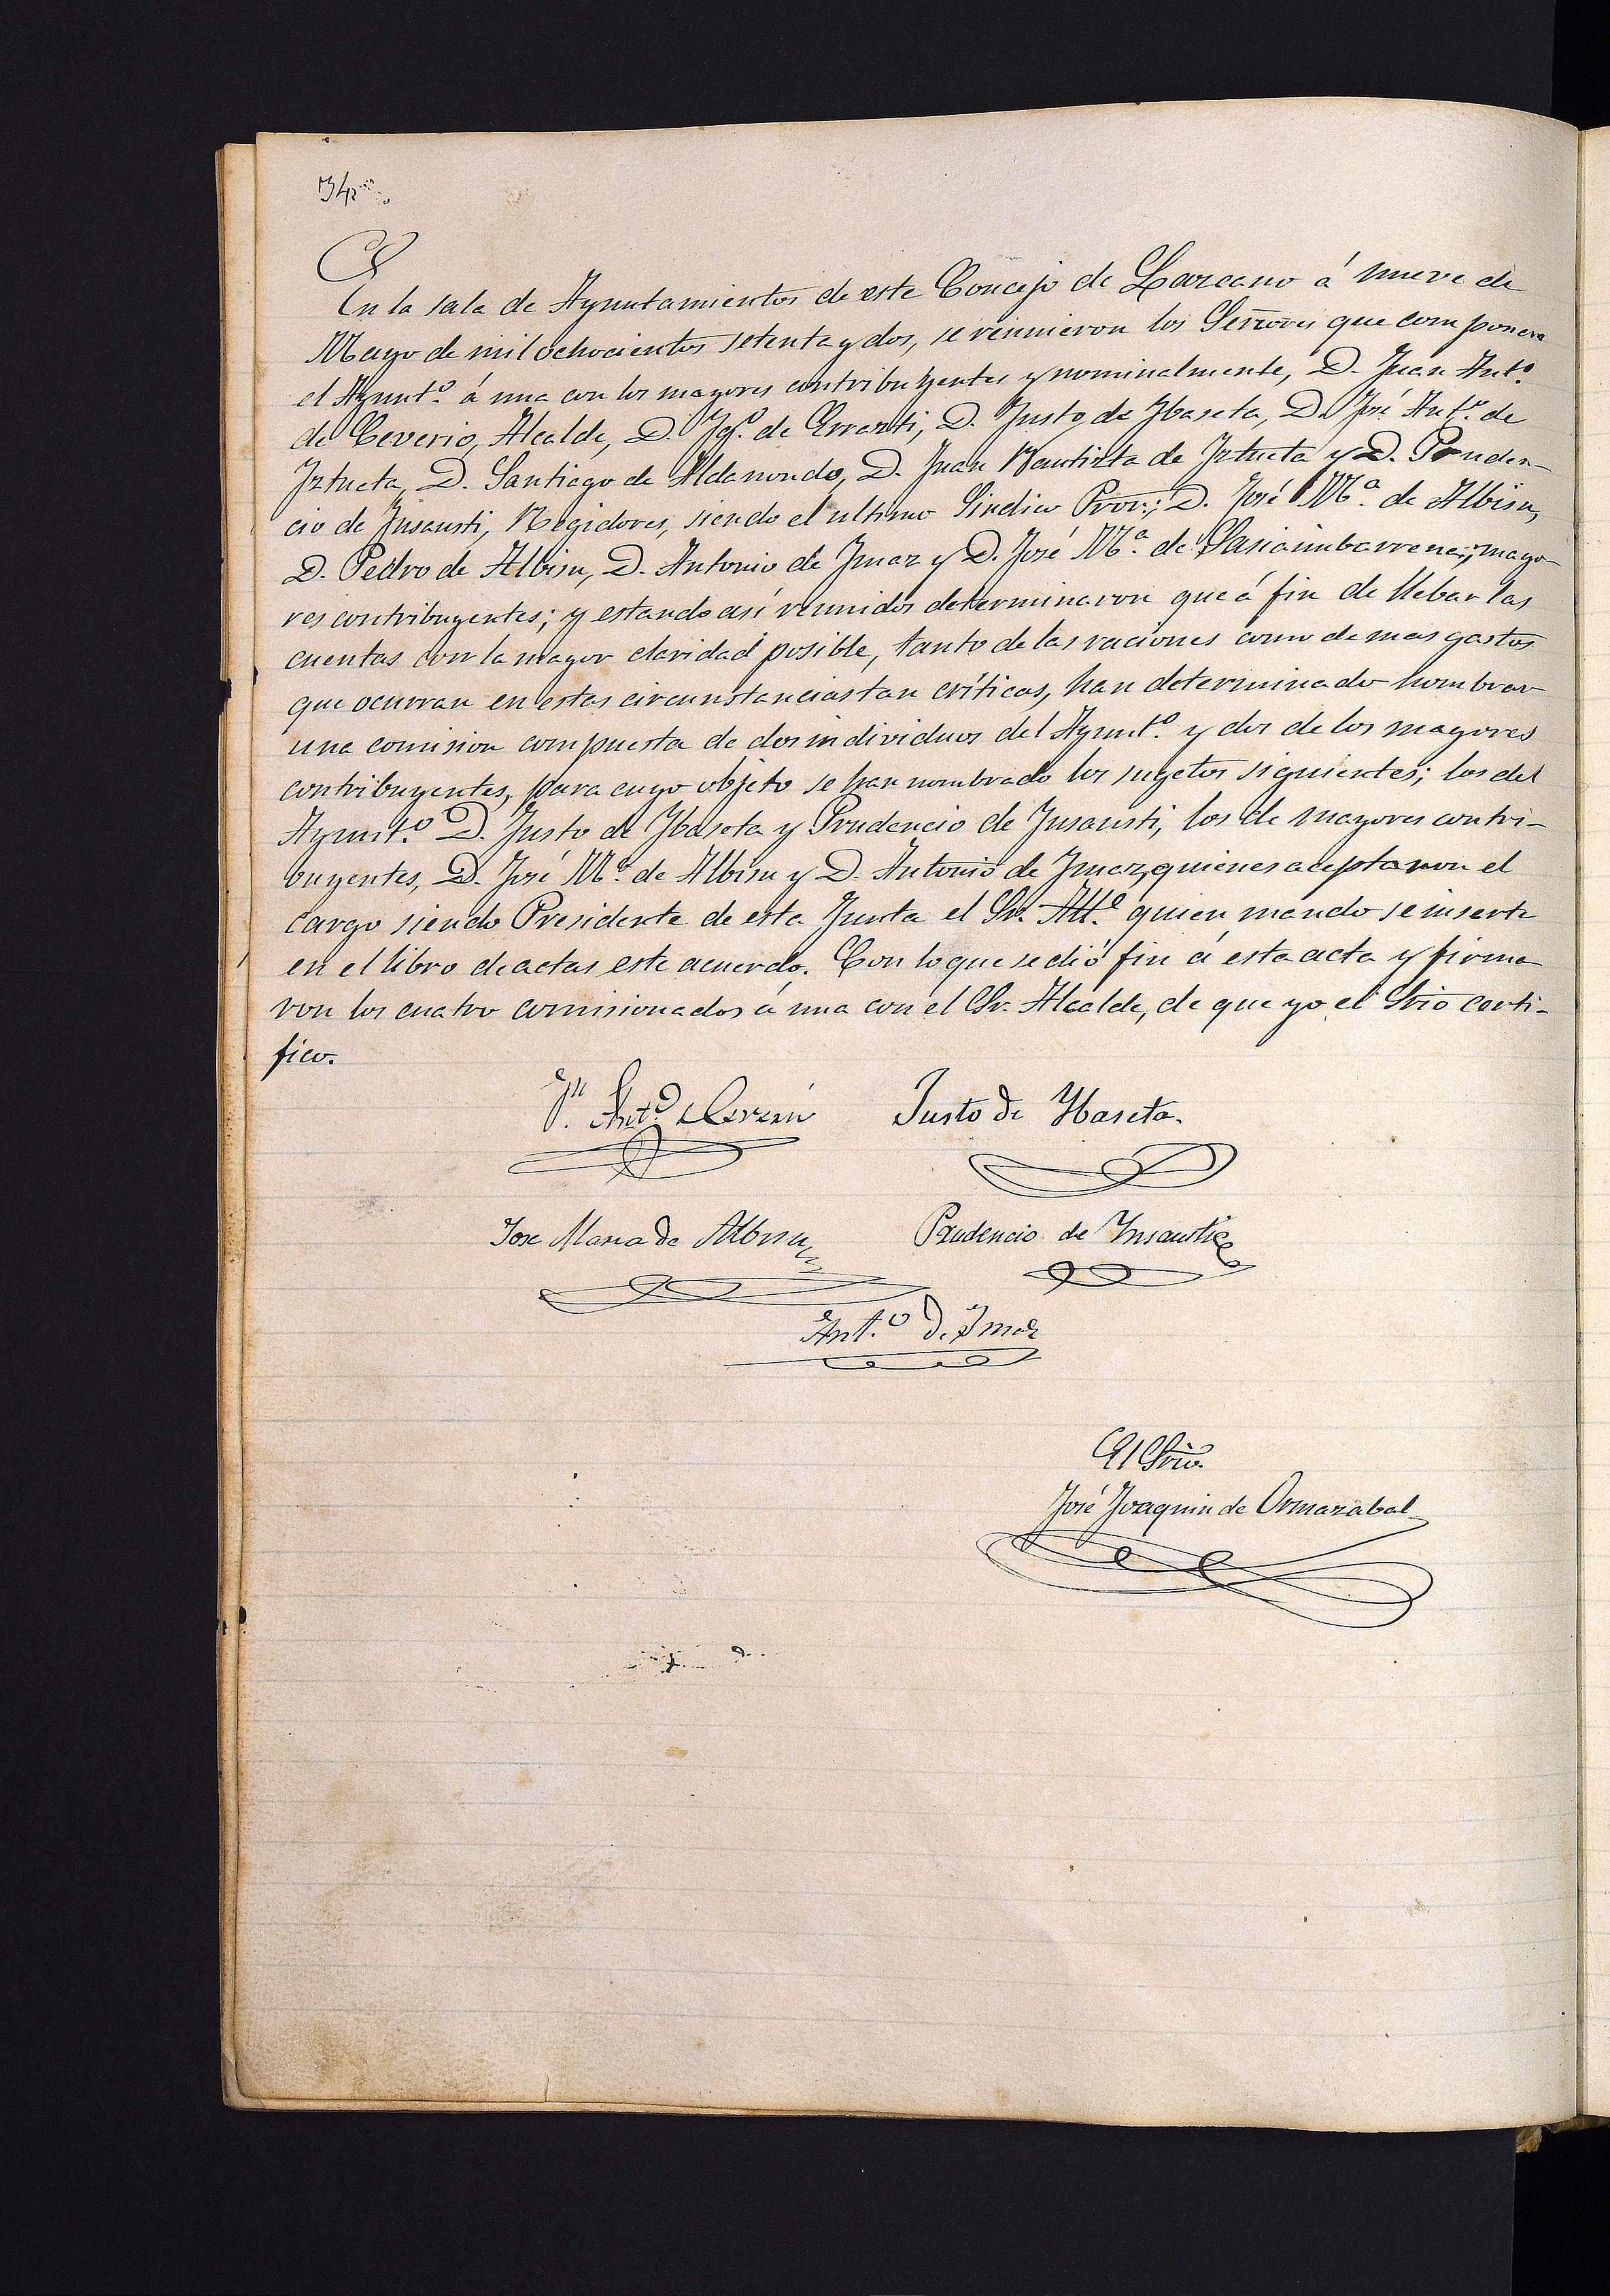 En la sala de Ayuntamientos de este Concejo de Lazcano á nueve de
Mayo de mil ochocientos setenta y dos, se reunieron los Señores que componen
el Ayunt.º á una con los mayores contribuyentes y nominalmente, D. Juan Ant.º
de Ceverio, Alcalde, D. Ig.º de Errazti, D. Justo de Ybaseta, D. José Ant.º de
Iztueta, D. Santiago de Aldanondo, D. Juan Bautista de Iztueta y D. Pruden-
cio de Insausti, Regidores, siendo el ultimo Sindico Pror.; D. José M.ª de Albisu,
D. Pedro de Albisu, D. Antonio de Imaz y D. José M.ª de Sasiambarrena; mayo-
res contribuyentes; y estando así reunidos determinaron que á fin de llebar las
cuentas con la mayor claridad posible, tanto de las raciones como demas gastos
que ocurran en estas circunstancias tan críticas, han determinado nombrar
una comision compuesta de dos individuos del Ayunt.º y dos de los mayores
contribuyentes, para cuyo objeto se han nombrado los sugetos siguientes; los del
Ayunt.º D. Justo de Ybaseta y Prudencio de Insausti, los de mayores contri-
buyentes, D. José M.ª de Albisu y D. Antonio de Imaz, quienes aceptaron el
cargo siendo Presidente de esta Junta el Sr. Alc.e quien mando se inserte
en el libro de actas este acuerdo. Con lo que se dió fin á esta acta y firma
ron los cuatro comisionados á una con el Sr. Alcalde, de que yo el Srio certi-
fico.
J.n Ant.º de Ceverio Justo de Ybaseta.
Jose Maria de Albisu Prudencio de Ynsausti
Ant.º de Imaz
El Srio.
José Joaquin de Ormazabal